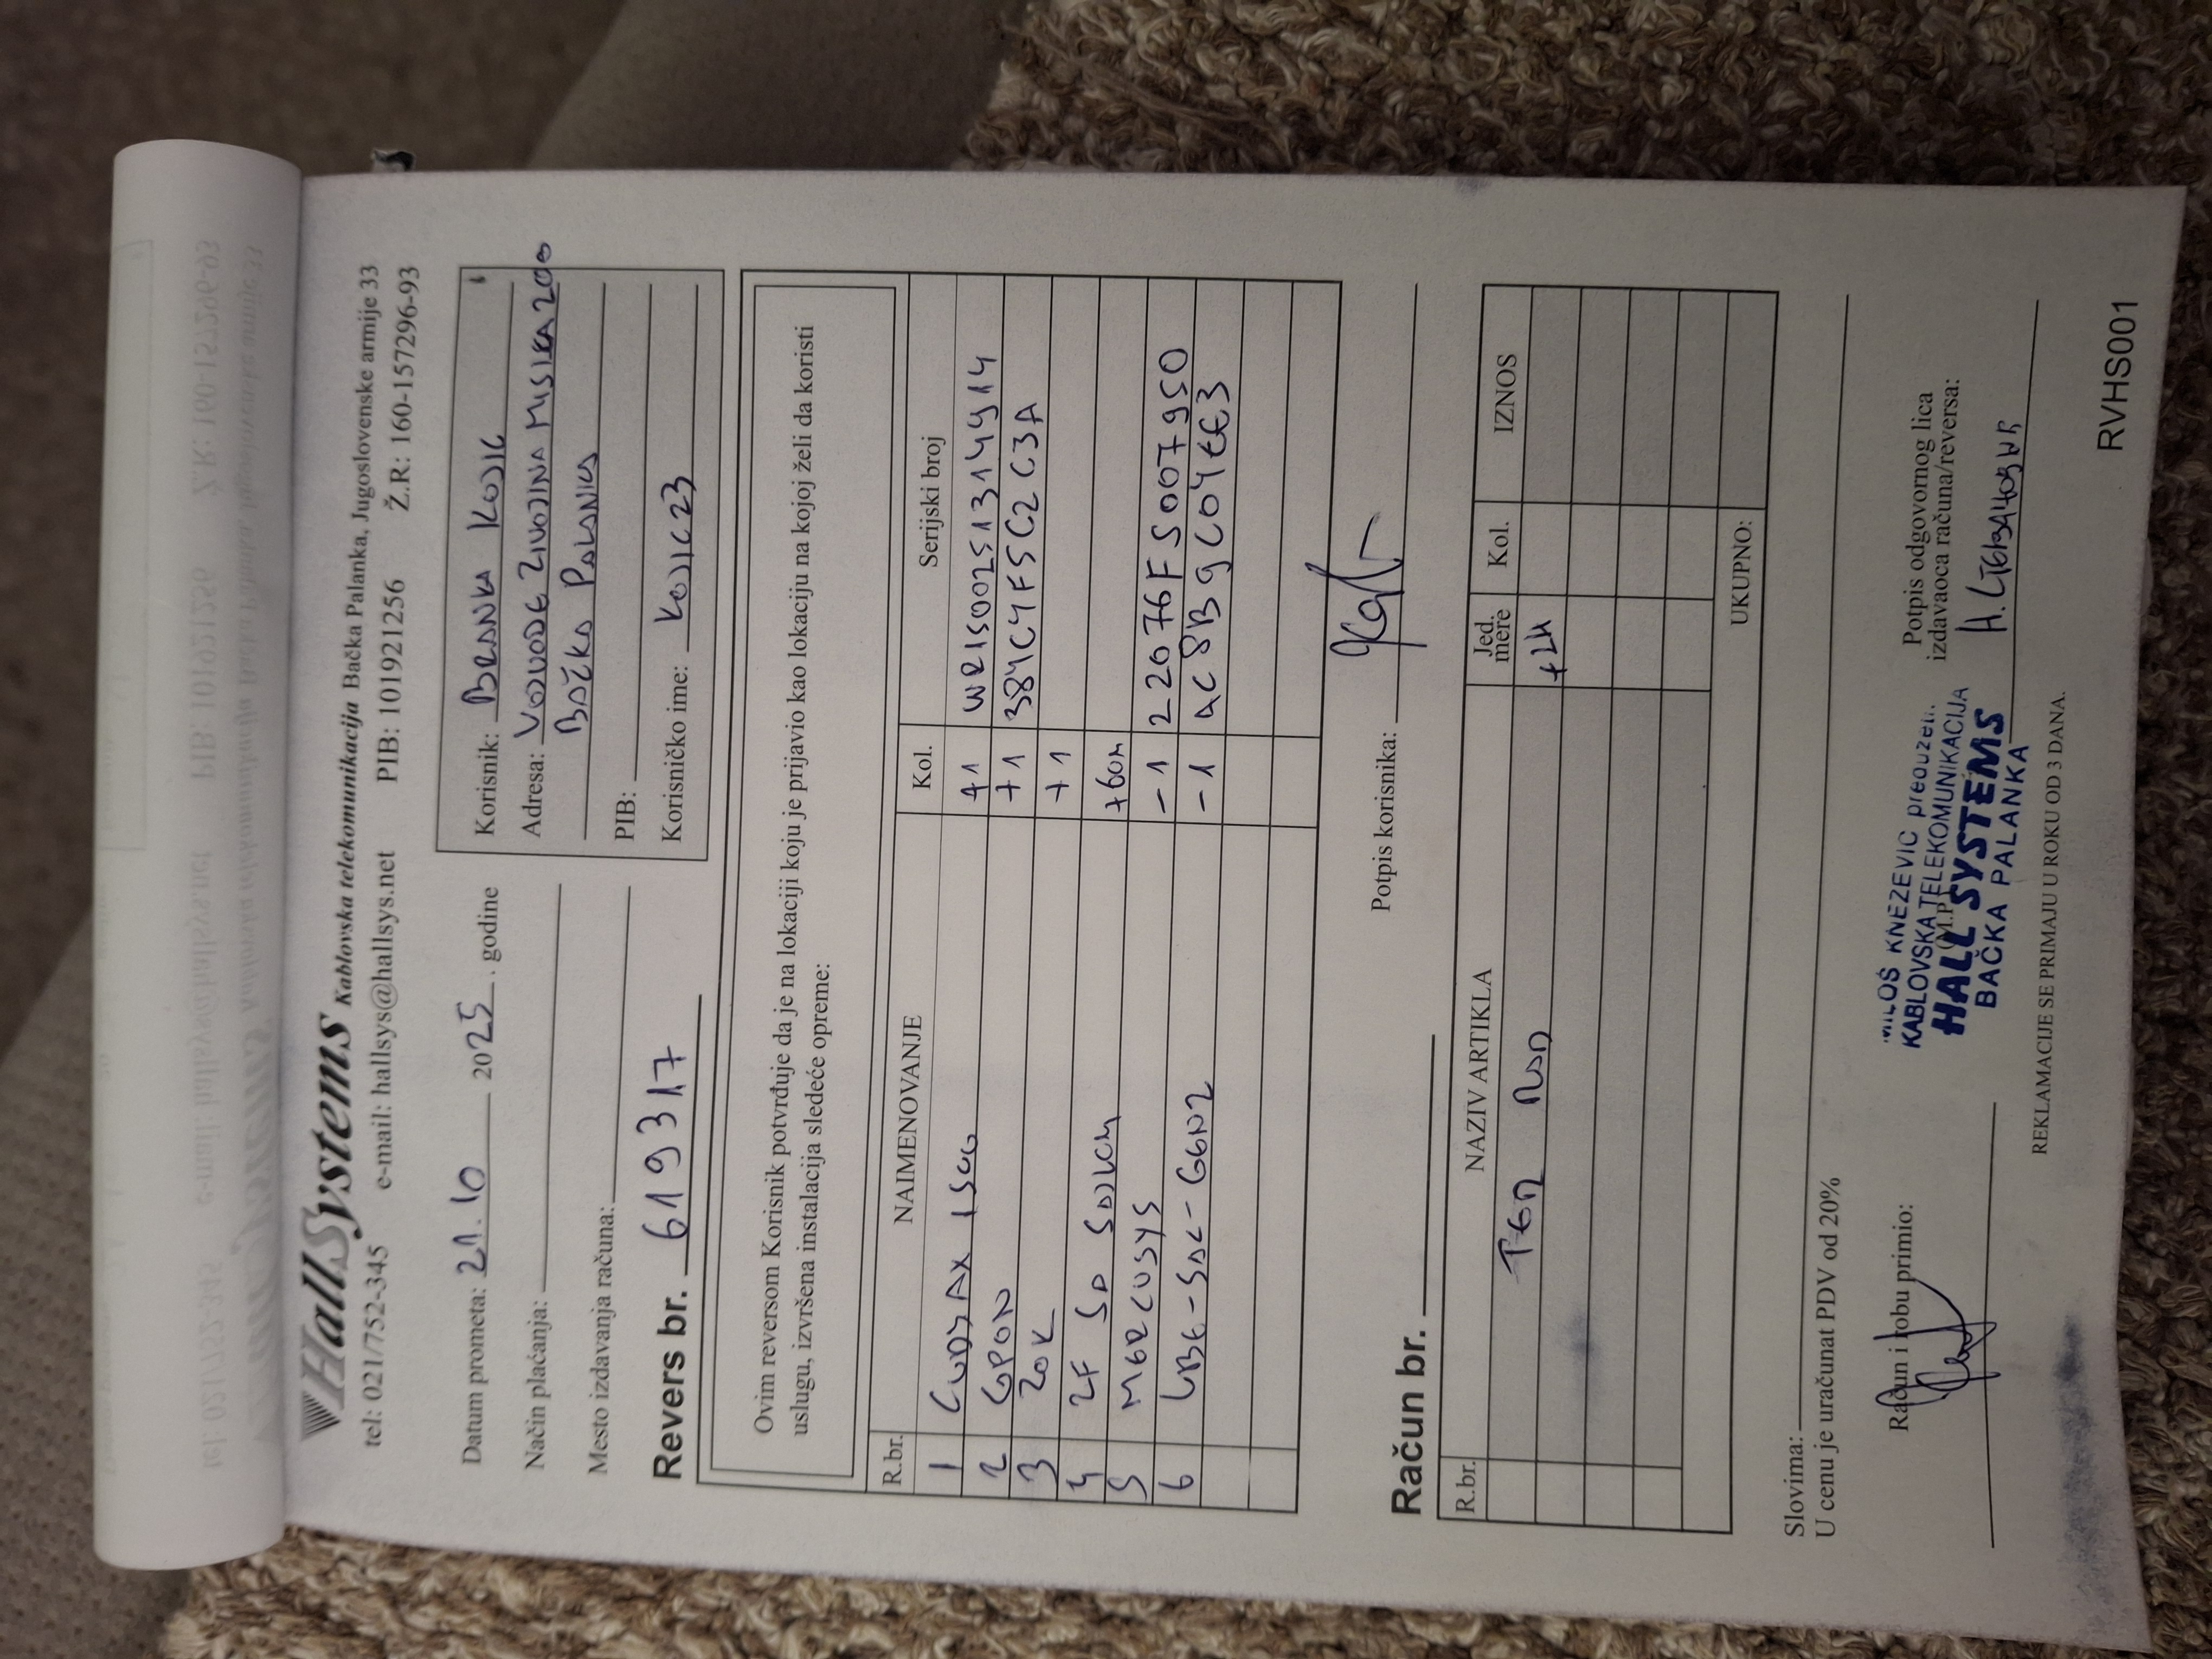 HallSystems Kablovska telekomunikacija Bačka Palanka, Jugoslovenske armije 33
tel: 021/752-345 e-mail: hallsys@hallsys.net PIB: 101921256 Ž.R: 160-157296-93
Datum prometa: 21.10 2025. godine
Način plaćanja:
Mesto izdavanja računa:
Korisnik: BRANKA KOJIC
Adresa: VOJVODE ZIVOJINA MISICA
BAČKA PALANKA
PIB:
Korisničko ime: KOJIC23
Revers br. 619317
Ovim reversom Korisnik potvrđuje da je na lokaciji koju je prijavio kao lokaciju na kojoj želi da koristi
uslugu, izvršena instalacija sledeće opreme:
R.br. NAIMENOVANJE Kol. Serijski broj
1 CUDY AX 1500 +1 WR1500251314914
2 GPON +1 384C4F5C2C3A
3 ZOK +1
4 +60m
5 MERCUSYS -1 22076FS007950
6 LBE-5AC-GEN2 -1
Potpis korisnika:
Račun br.
R.br. NAZIV ARTIKLA Jed. mere Kol. IZNOS
+2H
UKUPNO:
Slovima:
U cenu je uračunat PDV od 20%
Račun i robu primio:
MILOŠ KNEZEVIC preduzet.
KABLOVSKA TELEKOMUNIKACIJA
(M.P.)
HALL SYSTEMS
BAČKA PALANKA
Potpis odgovornog lica
izdavaoca računa/reversa:
REKLAMACIJE SE PRIMAJU U ROKU OD 3 DANA.
RVHS001